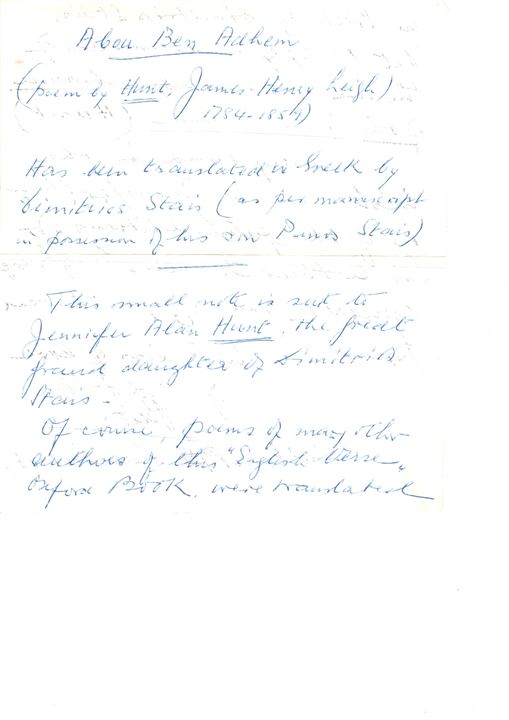 Abou Ben Adhem
(poem by Hunt, James Henry Leigh)
1784-1859)
Has been translated in Greek by
Dimitrios Stais (as per manuscript
in possession of his son Panos Stais)
This small note is sent to
Jennifer Alan Hunt, the great
grand daughter of Dimitrios
Stais -
Of course, poems of many other
authors of this "English Verse"
Oxford Book, were translated